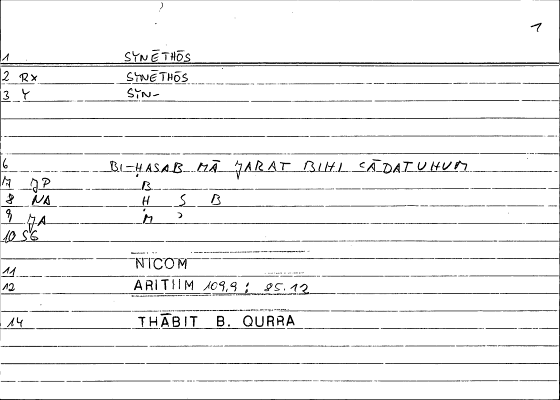 1
1 SYNĒTHŌS
2 RX SYNĒTHŌS
3 Y SYN-
6 BI-ḤASAB MĀ JARAT BIHI ʿĀDATUHUM
7 JP B
8 NA Ḥ S B
9 JA M ʾ
10 SG
11 NICOM
12 ARITHM 109,9 ; 85.12
14 THĀBIT B. QURRA